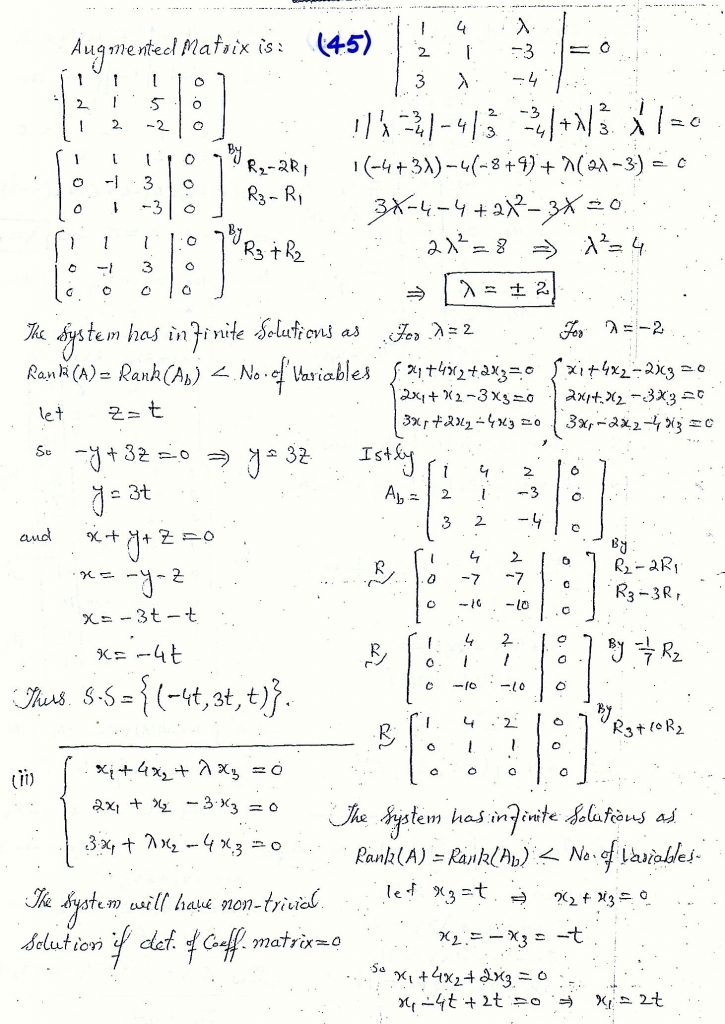 Augmented Matrix is:
[ 1 1 1 | 0 ]
[ 2 1 5 | 0 ]
[ 1 2 -2 | 0 ]
[ 1 1 1 | 0 ] By
[ 0 -1 3 | 0 ] R₂-2R₁
[ 0 1 -3 | 0 ] R₃-R₁
[ 1 1 1 | 0 ] By
[ 0 -1 3 | 0 ] R₃+R₂
[ 0 0 0 | 0 ]
The System has infinite Solutions as
Rank(A) = Rank(A_b) < No. of Variables
let z=t
So -y+3z=0 ⇒ y=3z
y=3t
and x+y+z=0
x=-y-z
x=-3t-t
x=-4t
Thus S.S={(-4t,3t,t)}.
(ii) { x₁+4x₂+λx₃=0
2x₁+x₂-3x₃=0
3x₁+λx₂-4x₃=0
The System will have non-trivial
Solution if det. of Coeff. matrix=0
(45)
| 1 4 λ |
| 2 1 -3 | = 0
| 3 λ -4 |
1|1 -3; λ -4| -4|2 -3; 3 -4| +λ|2 1; 3 λ| =0
1(-4+3λ)-4(-8+9)+λ(2λ-3)=0
3λ-4-4+2λ²-3λ=0
2λ²=8 ⇒ λ²=4
⇒ λ=±2
For λ=2 For λ=-2
{ x₁+4x₂+2x₃=0 { x₁+4x₂-2x₃=0
2x₁+x₂-3x₃=0 2x₁+x₂-3x₃=0
3x₁+2x₂-4x₃=0 , 3x₁-2x₂-4x₃=0
Istly
[ 1 4 2 | 0 ]
A_b = [ 2 1 -3 | 0 ]
[ 3 2 -4 | 0 ]
[ 1 4 2 | 0 ] By
R~ [ 0 -7 -7 | 0 ] R₂-2R₁
[ 0 -10 -10 | 0 ] R₃-3R₁
[ 1 4 2 | 0 ]
R~ [ 0 1 1 | 0 ] By -1/7 R₂
[ 0 -10 -10 | 0 ]
[ 1 4 2 | 0 ] By
R~ [ 0 1 1 | 0 ] R₃+10R₂
[ 0 0 0 | 0 ]
The System has infinite Solutions as
Rank(A) = Rank(A_b) < No. of Variables.
let x₃=t ⇒ x₂+x₃=0
x₂=-x₃=-t
So x₁+4x₂+2x₃=0
x₁-4t+2t=0 ⇒ x₁=2t